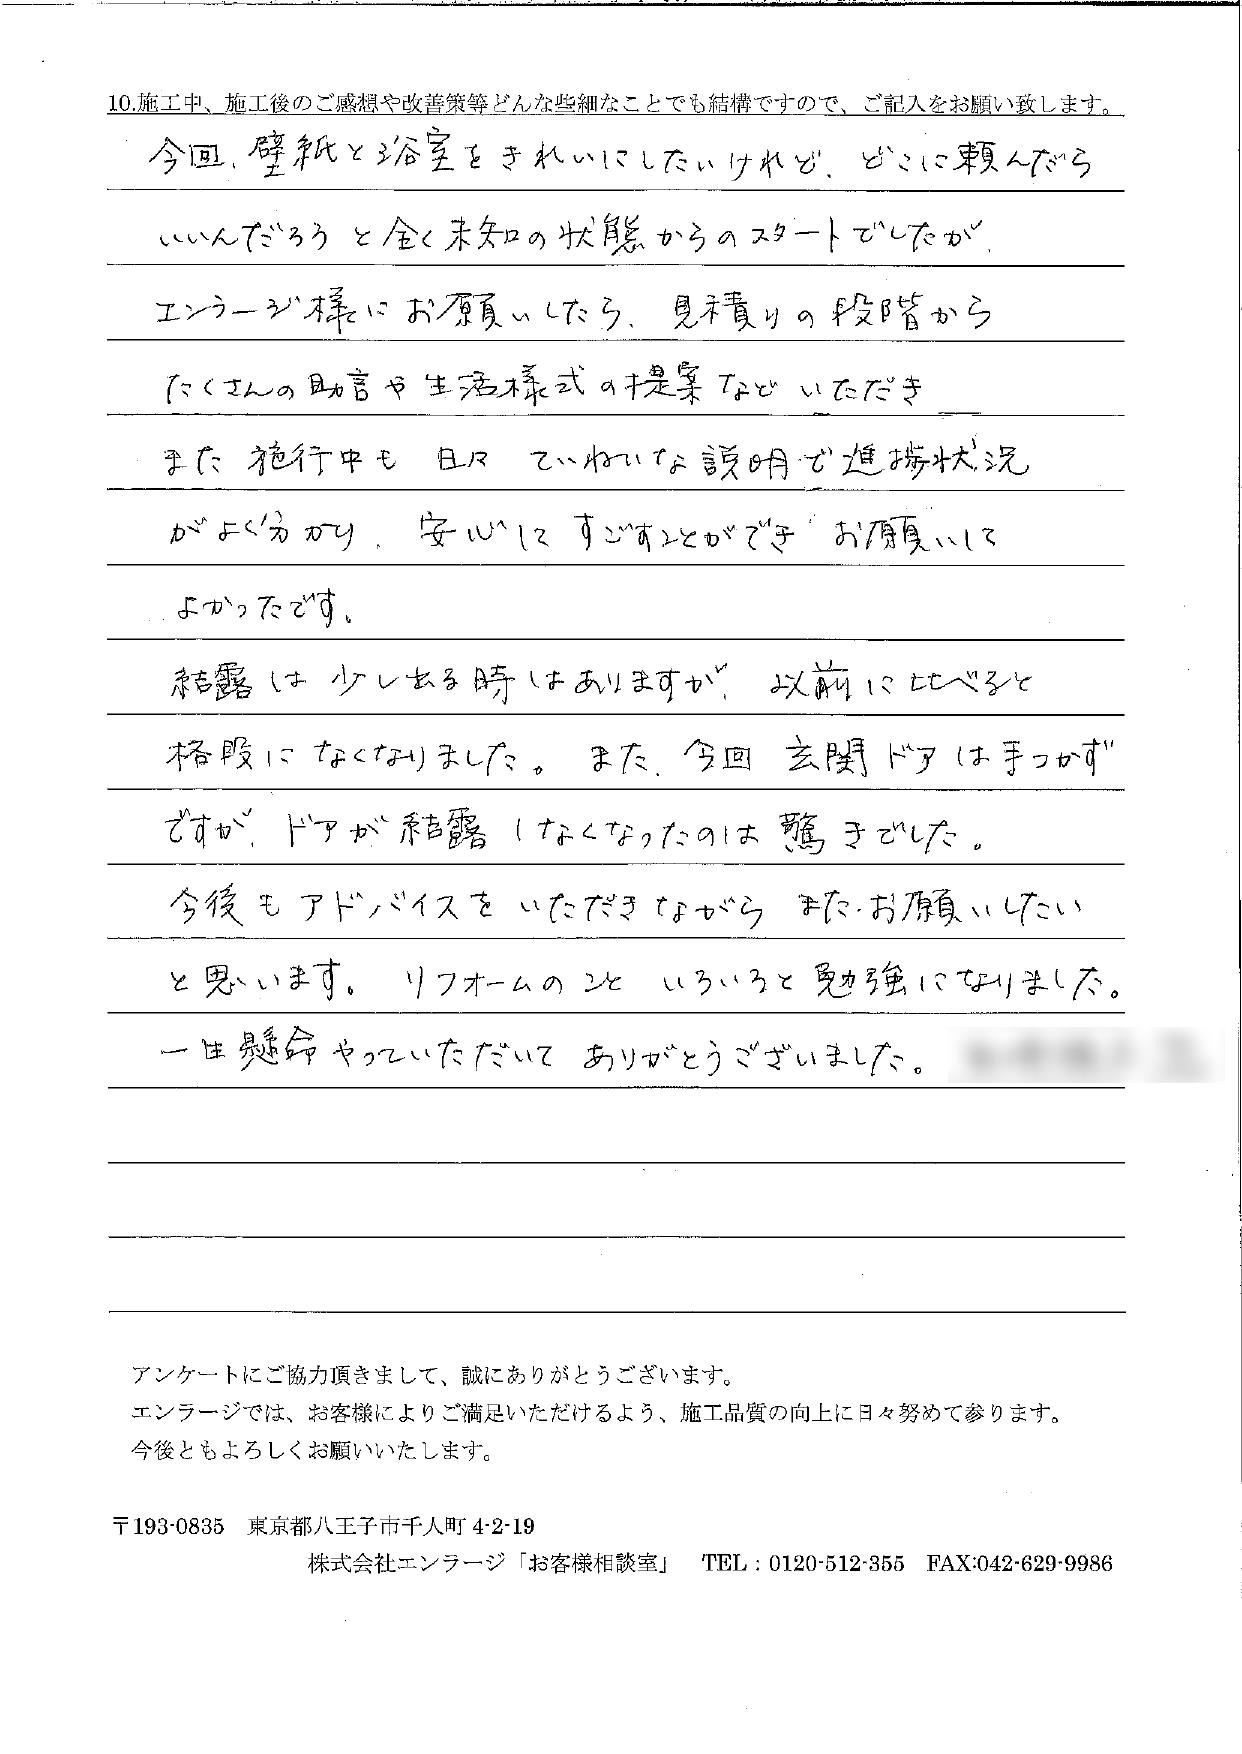 10.施工中、施工後のご感想や改善策等どんな些細なことでも結構ですので、ご記入をお願い致します。
今回、壁紙と浴室をきれいにしたいけれど、どこに頼んだら
いいんだろうと全く未知の状態からのスタートでしたが、
エンラージ様にお願いしたら、見積りの段階から
たくさんの助言や生活様式の提案などいただき
また施行中も日々ていねいな説明で進捗状況
がよく分かり、安心してすごすことができお願いして
よかったです。
結露は少し出る時はありますが、以前に比べると
格段になくなりました。また、今回玄関ドアは手つかず
ですが、ドアが結露しなくなったのは驚きでした。
今後もアドバイスをいただきながらまたお願いしたい
と思います。リフォームのこといろいろと勉強になりました。
一生懸命やっていただいてありがとうございました。
アンケートにご協力頂きまして、誠にありがとうございます。
エンラージでは、お客様によりご満足いただけるよう、施工品質の向上に日々努めて参ります。
今後ともよろしくお願いいたします。
〒193-0835 東京都八王子市千人町 4-2-19
株式会社エンラージ「お客様相談室」 TEL：0120-512-355 FAX:042-629-9986